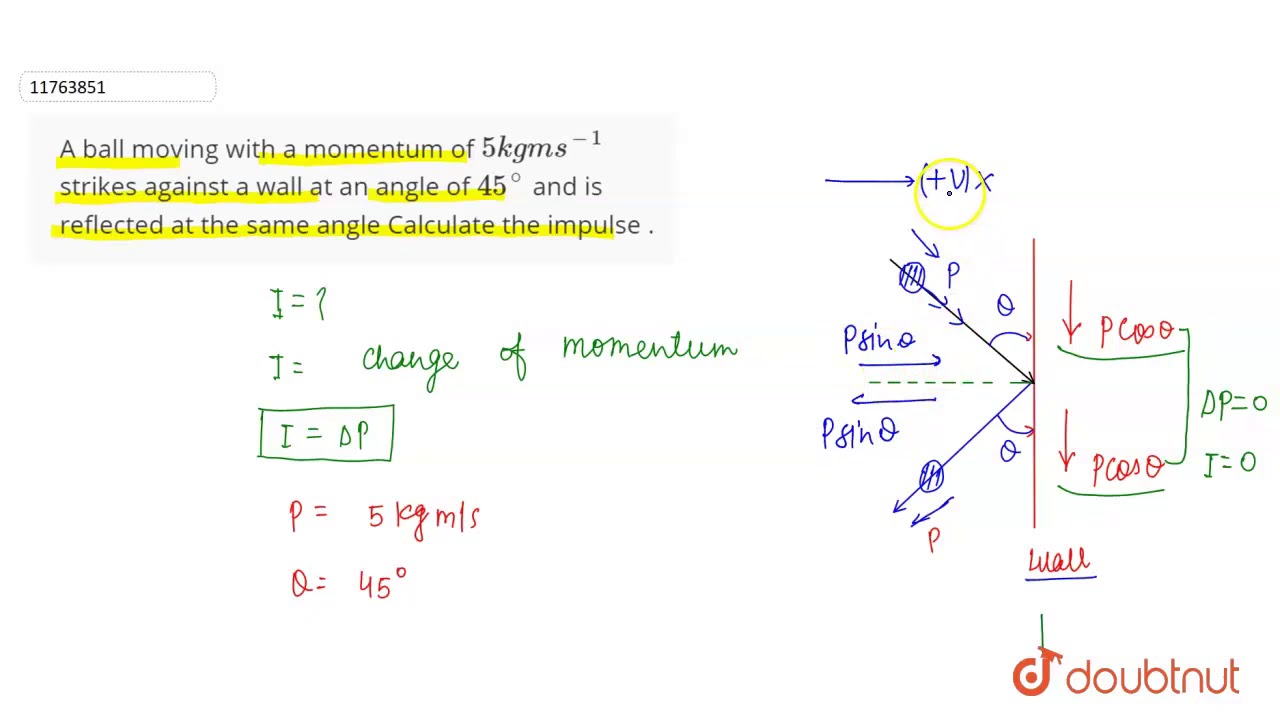 11763851
A ball moving with a momentum of 5kgms⁻¹
strikes against a wall at an angle of 45° and is
reflected at the same angle Calculate the impulse .
I = ?
I = change of momentum
I = ΔP
P = 5 kg m/s
θ = 45°
(+v) x
P
θ
P cosθ
P sinθ
P sinθ
ΔP=0
θ
P cosθ
I=0
P
wall
doubtnut